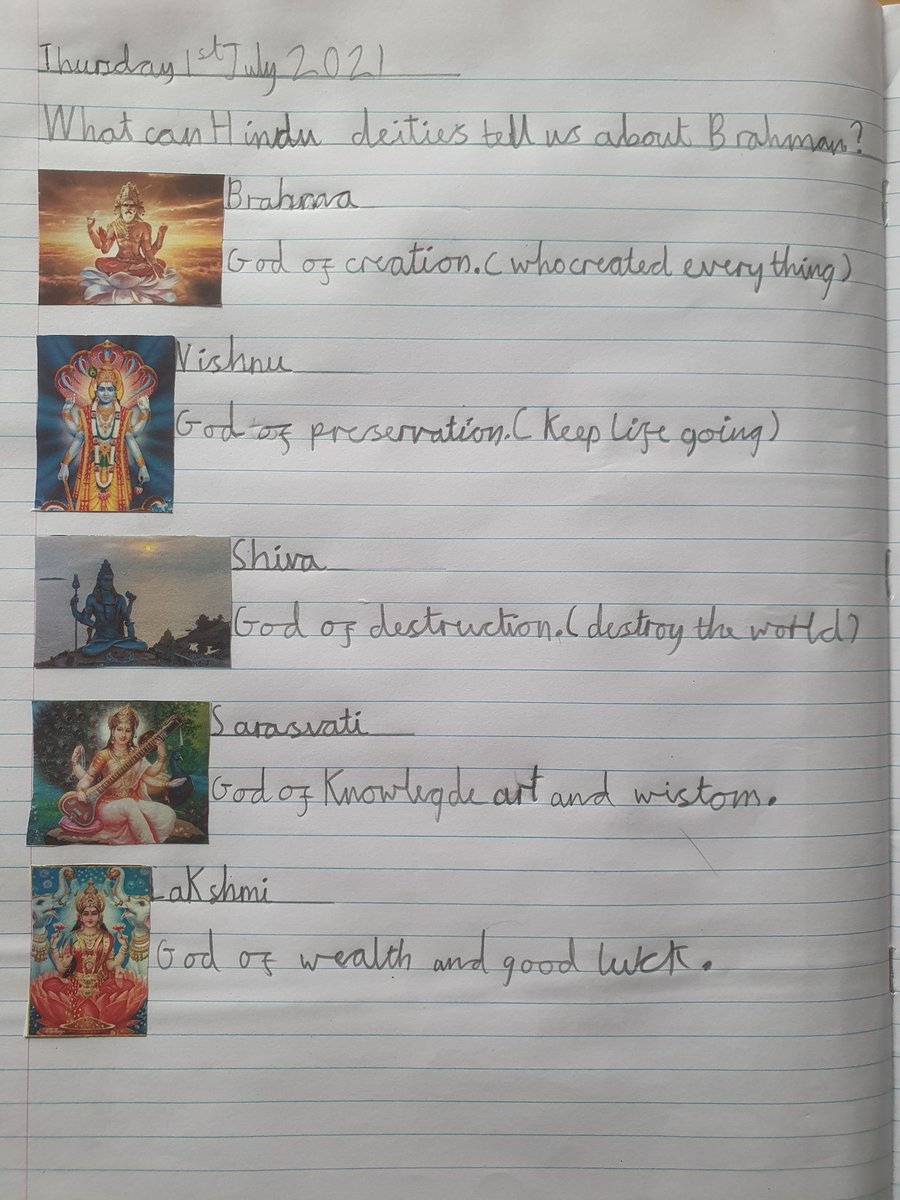 Thursday 1st July 2021
What can Hindu deities tell us about Brahman?
Brahma
God of creation. (who created everything)
Vishnu
God of preservation. (Keep life going)
Shiva
God of destruction. (destroy the world)
Sarasvati
God of Knowleqde art and wistom.
Lakshmi
God of wealth and good luck.